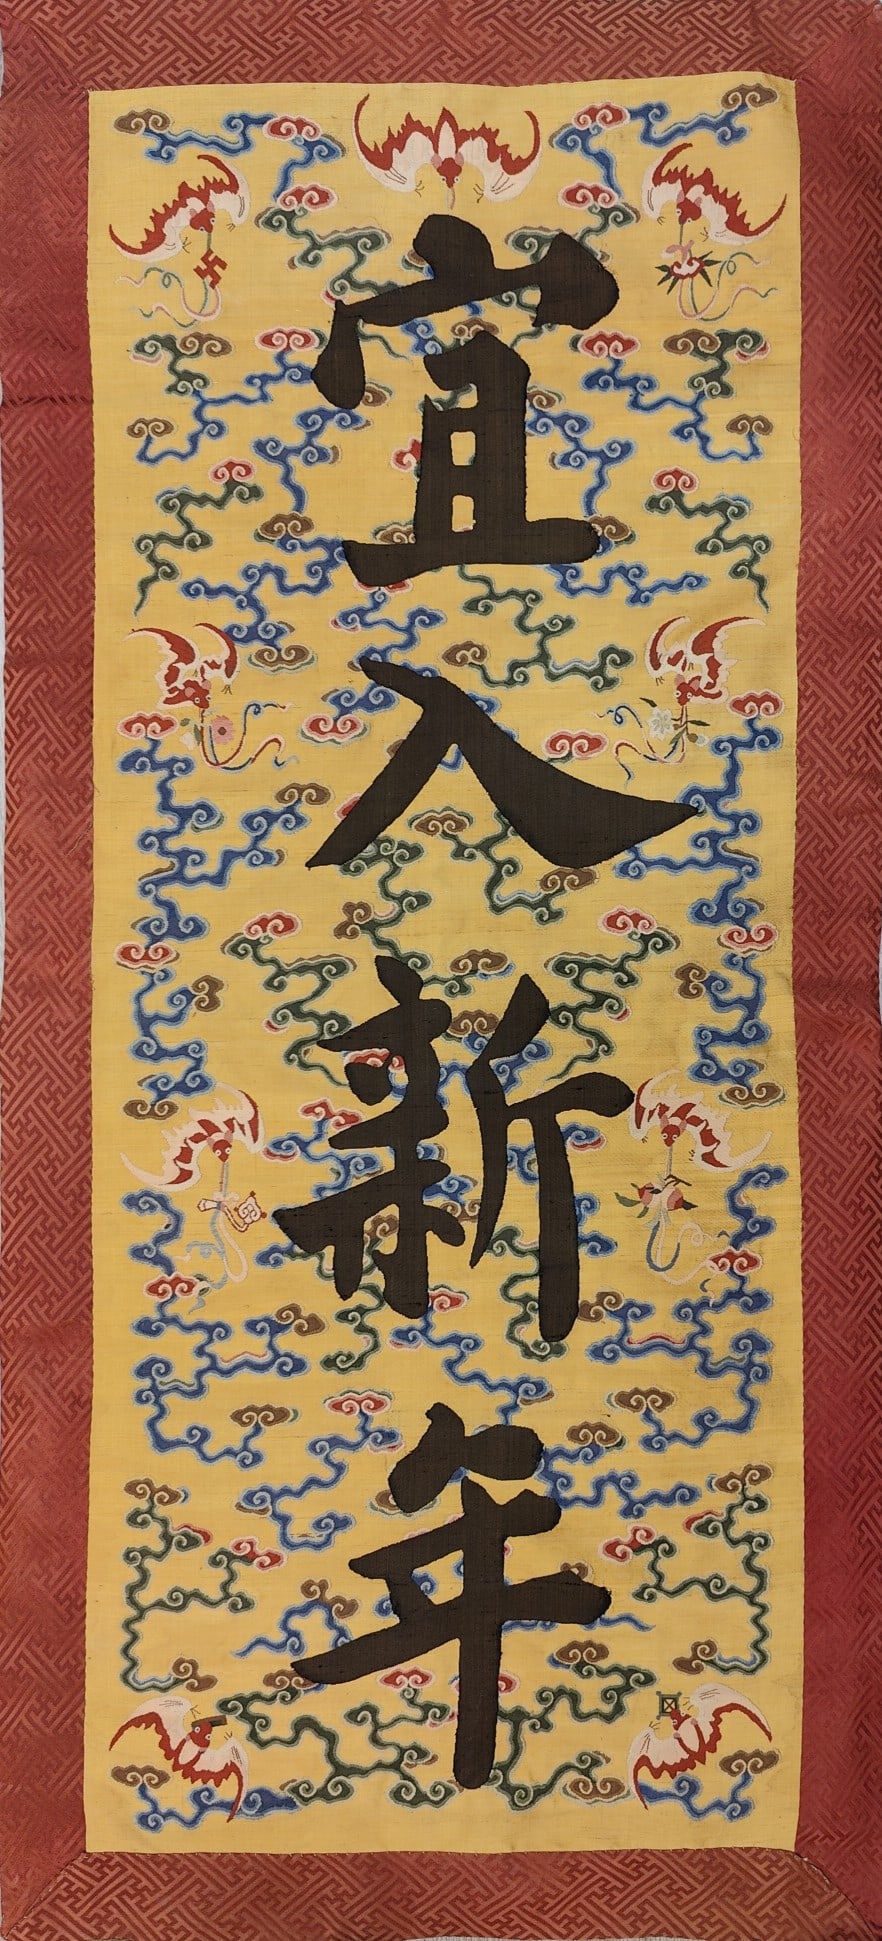 宜入新年